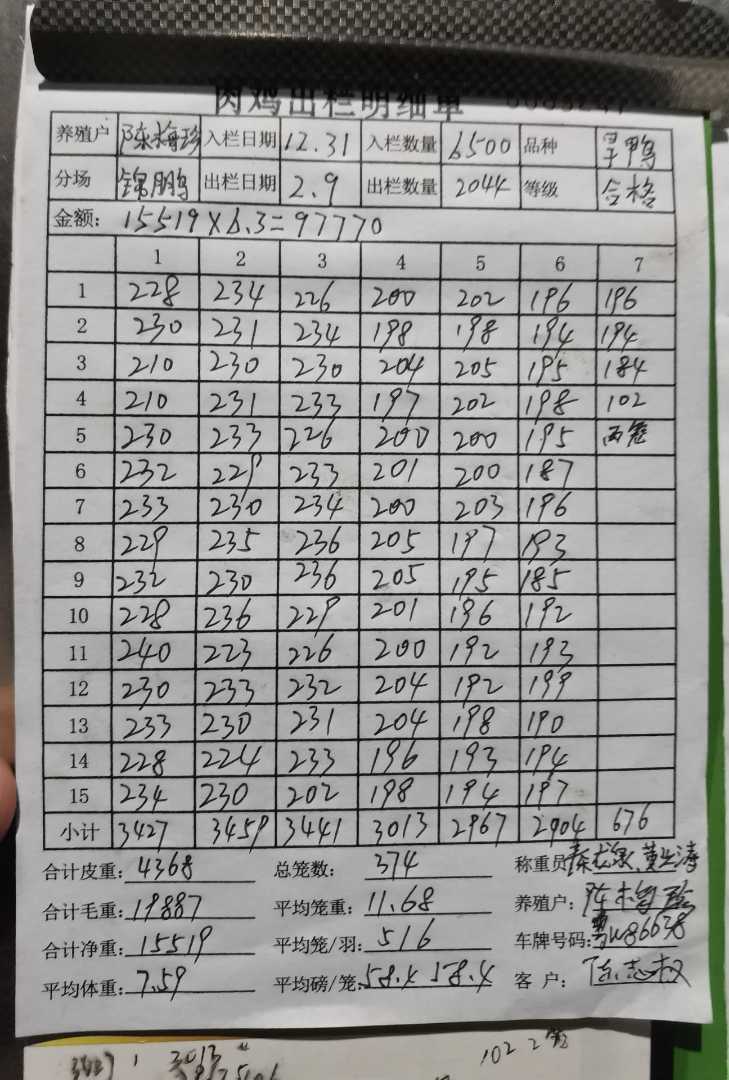 肉鸡出栏明细单
养殖户 陈梅珍 入栏日期 12.31 入栏数量 6500 品种 旱鸭
分场 锦鹏 出栏日期 2.9 出栏数量 2044 等级 合格
金额: 15519×6.3=97770
1 2 3 4 5 6 7
1 228 234 226 200 202 196 196
2 230 231 234 198 198 194 194
3 210 230 230 204 205 195 184
4 210 231 233 197 202 198 102
5 230 233 226 200 200 195 两笼
6 232 229 233 201 200 187
7 233 230 234 200 203 196
8 229 235 236 205 197 193
9 232 230 236 205 195 185
10 228 236 229 201 196 192
11 240 223 226 200 192 193
12 230 233 232 204 192 199
13 233 230 231 204 198 190
14 228 224 233 196 193 194
15 234 230 202 198 194 197
小计 3427 3459 3441 3013 2967 2904 676
合计皮重: 4368 总笼数: 374 称重员
合计毛重: 19887 平均笼重: 11.68 养殖户: 陈梅珍
合计净重: 15519 平均笼/羽: 516 车牌号码: 粤W86638
平均体重: 7.59 平均磅/笼: 58.4 58.4 客户: 陈志权
3427 3013
102 2笼